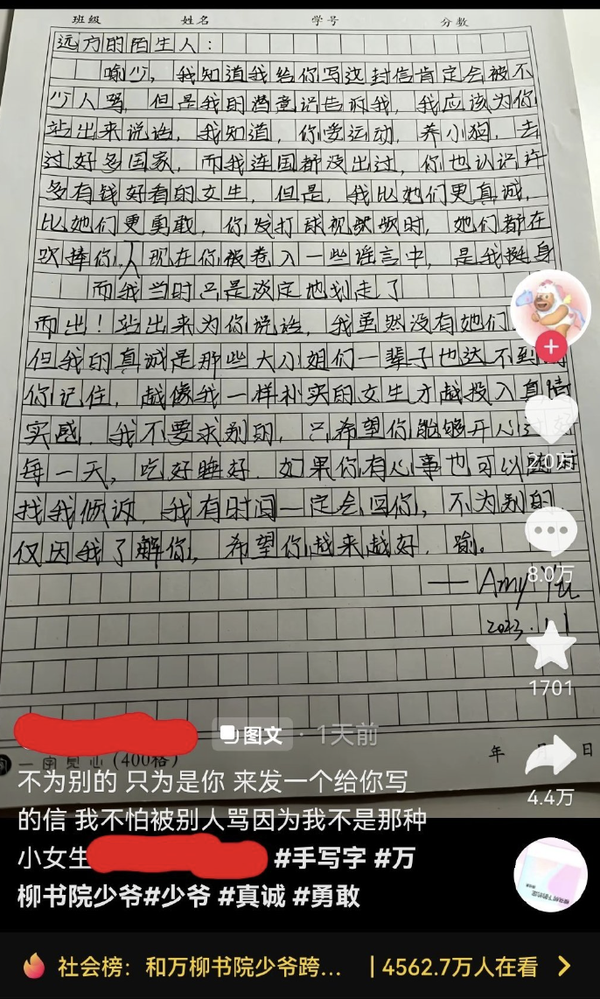 班级 姓名 学号 分数
远方的陌生人：
喻少，我知道我给你写这封信肯定会被不
少人骂，但是我的潜意识告诉我，我应该为你
站出来说话，我知道，你爱运动，养小狗，去
过好多国家，而我连国都没出过，你也认识许
多有钱好看的女生，但是，我比她们更真诚，
比她们更勇敢，你发打球视频时，她们都在
吹捧你，现在你被卷入一些谣言中，是我挺身
而我当时只是淡定地划走了
而出！站出来为你说话，我虽然没有她们
但我的真诚是那些大小姐们一辈子也达不到的
你记住，越像我一样朴实的女生才越投入真情
实感，我不要求别的，只希望你能够开心过好
每一天，吃好睡好，如果你有心事也可以随时
找我倾诉，我有时间一定会回你，不为别的
仅因我了解你，希望你越来越好，喻。
——Amy
2023.1.1
2.0万
8.0万
1701
4.4万
图文 · 1天前
(400格) 年 日
不为别的 只为是你 来发一个给你写
的信 我不怕被别人骂因为我不是那种
小女生 #手写字 #万
柳书院少爷#少爷 #真诚 #勇敢
社会榜：和万柳书院少爷跨... | 4562.7万人在看